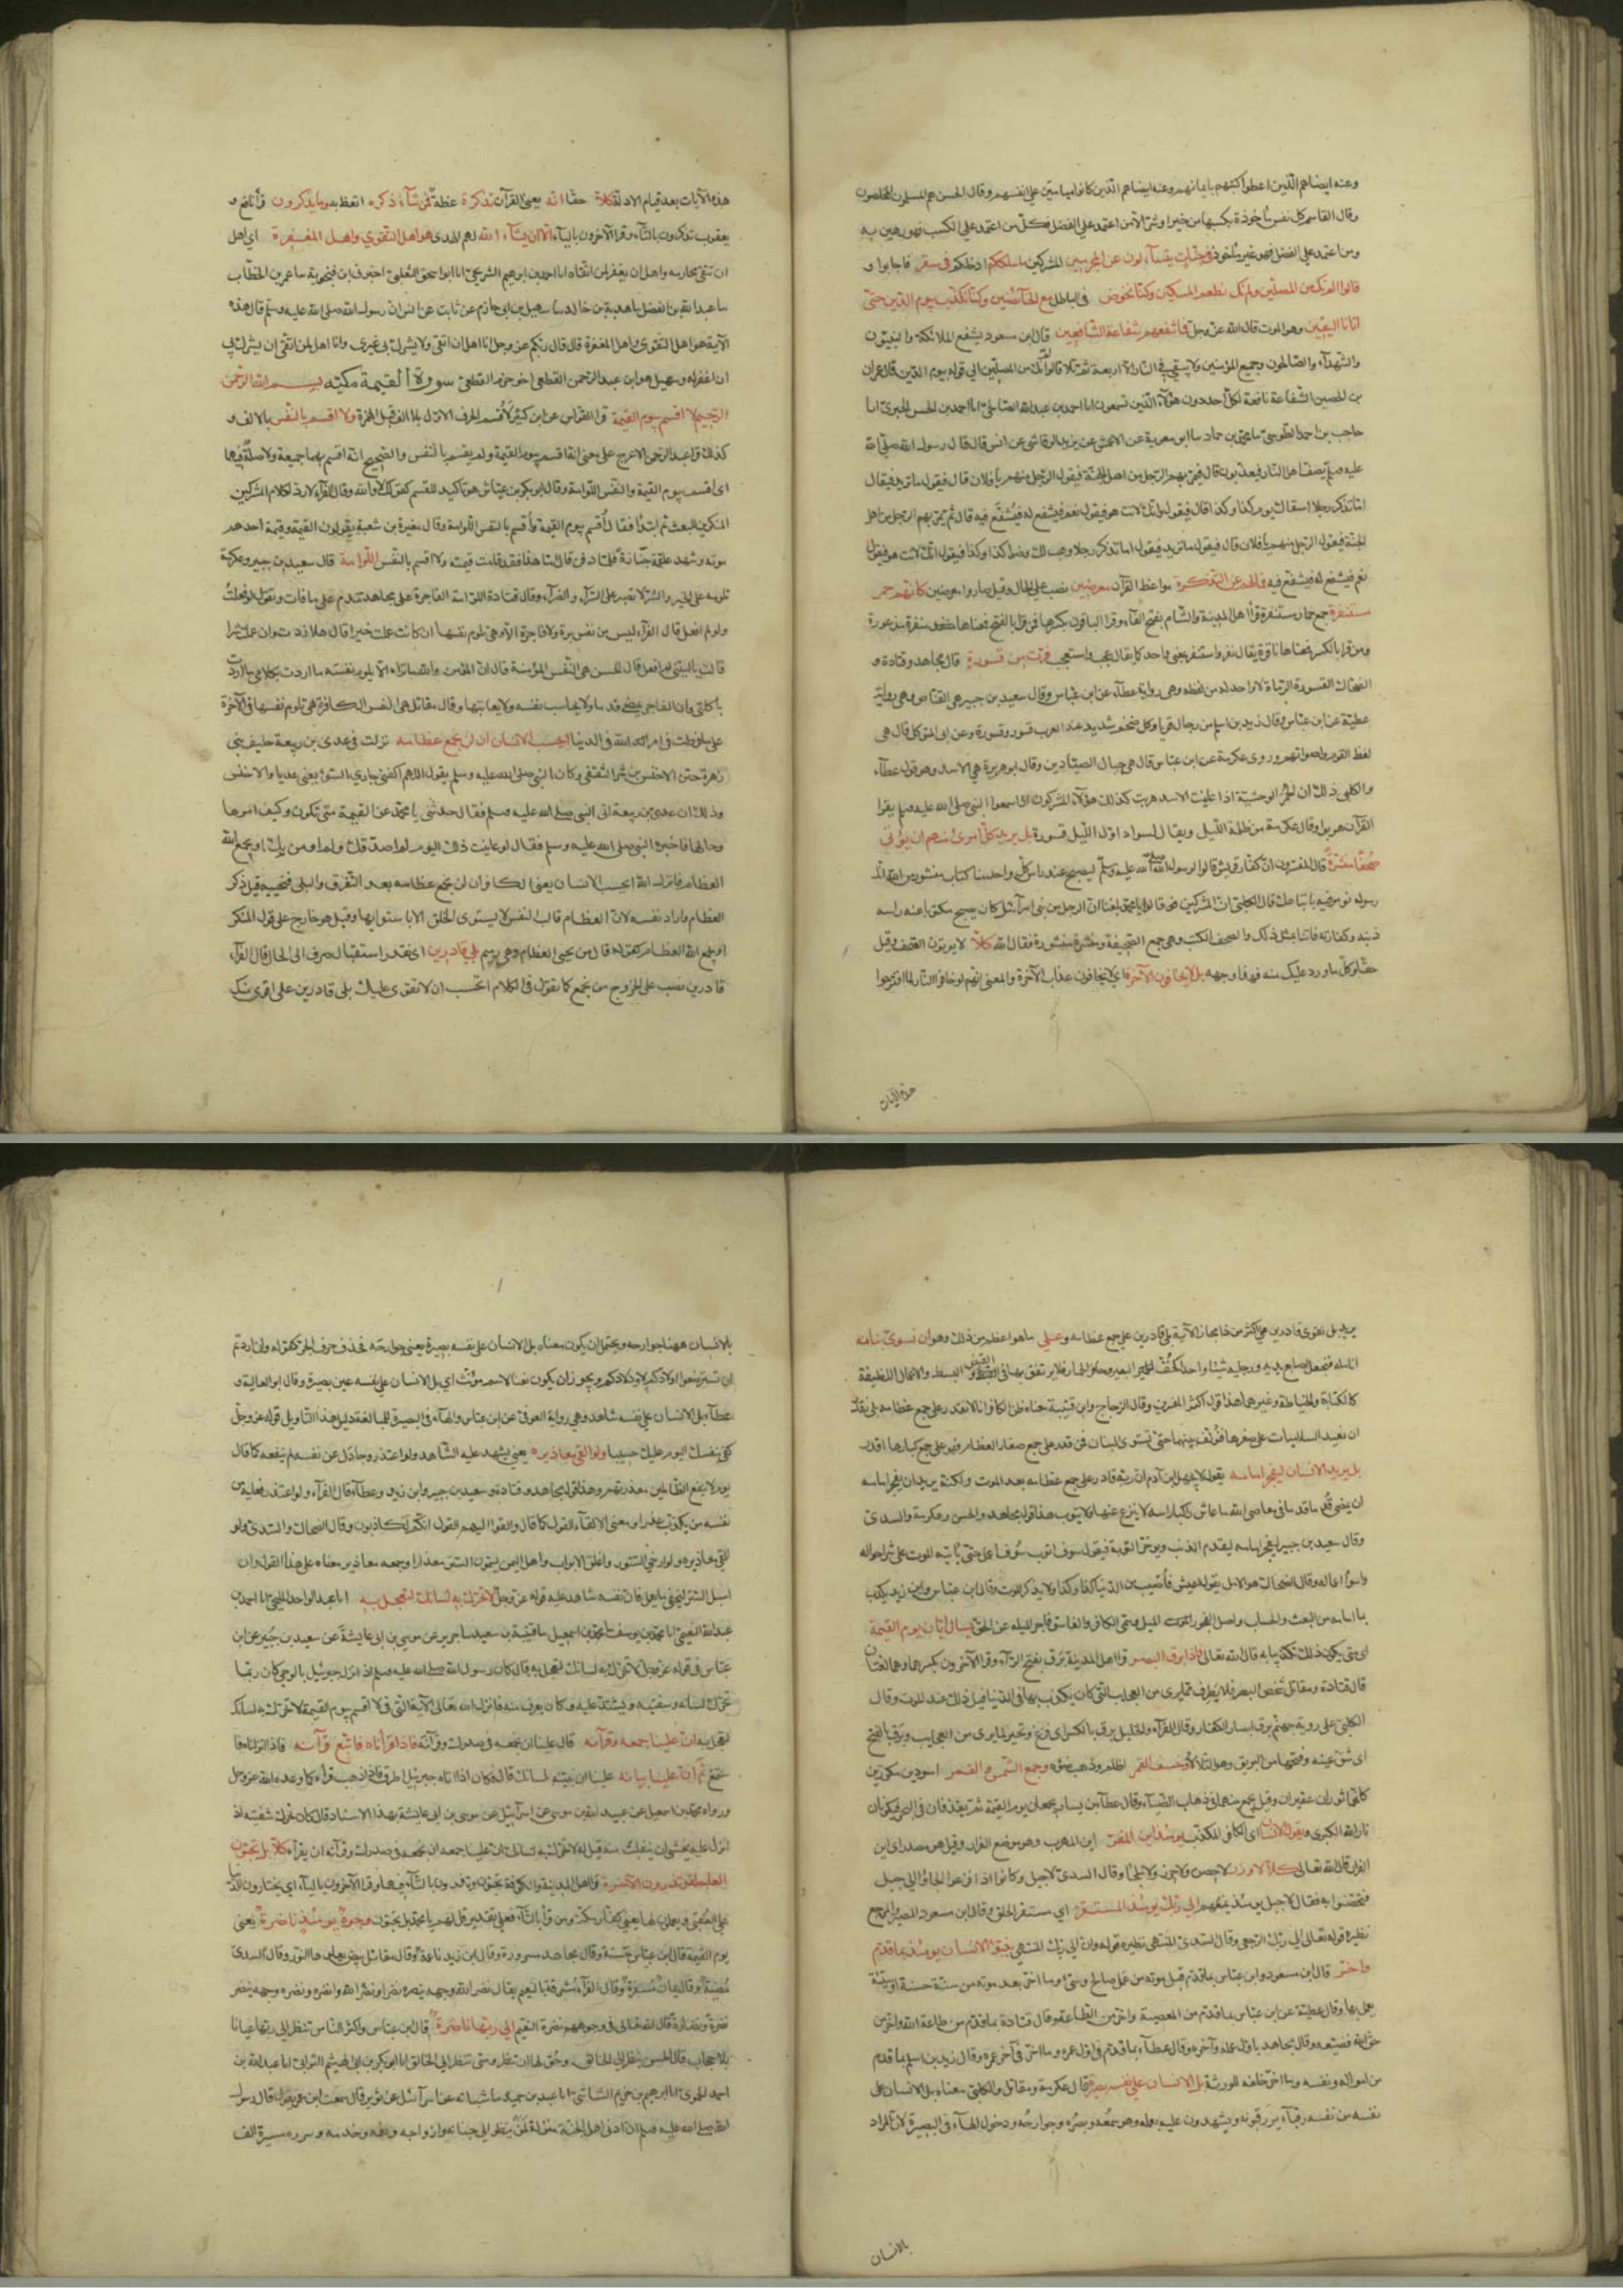 وعنه ايضا هم الذين اعطوا كتبهم بايمانهم وعنه ايضا هم الذين كانوا ميامين على انفسهم وقال الحسن هم المسلمون المخلصون
وقال القاسم كل نفس مأخوذة بكسبها من خير او شر الا من اعتمد على الفضل فكل من اعتمد على الكسب فهو رهين به
ومن اعتمد على الفضل فهو غير مأخوذ في جنات يتسآءلون عن المجرمين المشركين ما سلككم ادخلكم في سقر فاجابوا و
قالوا لم نك من المصلين ولم نك نطعم المسكين وكنا نخوض في الباطل مع الخآئضين وكنا نكذب بيوم الدين حتى
اتانا اليقين وهو الموت قال الله عز وجل فما تنفعهم شفاعة الشافعين قال ابن مسعود يشفع الملائكة والنبيون
والشهدآء والصالحون وجميع المؤمنين ولا يبقى في النار الا اربعة ثم تلا قالوا لم نك من المصلين الى قوله بيوم الدين قال عمران
بن الحصين الشفاعة نافعة لكل احد دون هؤلآء الذين تسمعون انا احمد بن عبدالله الصالحي انا احمد بن الحسن الحيري انا
حاجب بن احمد الطوسي نا محمد بن حماد نا ابو معوية عن الاعمش عن يزيد الرقاشي عن انس قال قال رسول الله صلى الله
عليه وسلم يصف اهل النار فيعذبون قال فيمر بهم الرجل من اهل الجنة فيقول الرجل منهم يا فلان قال فيقول ما تريد فيقال
اما تذكر رجلا اسقاك يوم كذا وكذا قال فيقول وانك لانت هو فيقول نعم فيشفع له فيشفع فيه قال ثم يمر بهم الرجل من اهل
الجنة فيقول الرجل منهم يا فلان قال فيقول ما تريد فيقول اما تذكر رجلا وهب لك وضوا كذا وكذا فيقول انك لانت هو فيقول
نعم فيشفع له فيشفع فيه فما لهم عن التذكرة مواعظ القرآن معرضين نصب على الحال وقيل صاروا معرضين كانهم حمر
مستنفرة جمع حمار مستنفرة قرأ اهل المدينة والشام بفتح الفآء وقرا الباقون بكسرها فمن قرا بالفتح فمعناها منفرة مذعورة
ومن قرا بالكسر فمعناها نافرة يقال نفر واستنفر بمعنى واحد كما يقال عجب واستعجب فرت من قسورة قال مجاهد وقتادة و
الضحاك القسورة الرماة لا واحد له من لفظه وهي رواية عطآء عن ابن عباس وقال سعيد بن جبير هي القناص وهي رواية
عطية عن ابن عباس وقال زيد بن اسلم من رجال اقويا وكل ضخم شديد عند العرب قسور وقسورة وعن ابى المتوكل قال هي
لغط القوم واصواتهم وروى عكرمة عن ابن عباس قال هي حبال الصيادين وقال ابو هريرة هي الاسد وهو قول عطآء
والكلبي وذلك ان الحمر الوحشية اذا عاينت الاسد هربت كذلك هؤلآء المشركون اذا سمعوا النبي صلى الله عليه وسلم يقرا
القرآن هربوا وقال عكرمة من ظلمة الليل ويقال لسواد اول الليل قسورة بل يريد كل امرئ منهم ان يؤتى
صحفا منشرة قال المفسرون ان كفار قريش قالوا لرسول الله صلى الله عليه وسلم ليصبح عند راس كل واحد منا كتاب منشور من الله انك
رسوله نؤمر فيه باتباعك قال الكلبي ان المشركين قالوا يا محمد بلغنا ان الرجل من بنى اسرآئيل كان يصبح مكتوبا عند راسه
ذنبه وكفارته فاتنا بمثل ذلك والصحف الكتب وهي جمع الصحيفة ومنشرة منشورة فقال الله كلا لا يؤتون الصحف وقيل
حقا وكل ما ورد عليك منه فهذا وجهه بل لا يخافون الآخرة اى لا يخافون عذاب الآخرة والمعنى انهم لو خافوا النار لما اقترحوا
هذه الآيات
هذه الآيات بعد قيام الادلة كلا حقا انه يعنى القرآن تذكرة عظة فمن شآء ذكره اتعظ به وما يذكرون قرأ نافع و
يعقوب تذكرون بالتآء وقرا الآخرون باليآء الا ان يشآء الله لهم الهدى هو اهل التقوي واهل المغفرة اى اهل
ان تتقى محارمه واهل ان يغفر لمن اتقاه انا احمد بن ابرهيم الشريحي انا ابو اسحق الثعلبي اخبرني ابن فنجوية نا عمر بن الخطاب
نا عبد الله بن الفضل نا هدبة بن خالد نا سهيل بن ابى حازم عن ثابت عن انس ان رسول الله صلى الله عليه وسلم قال هذه
الآية هو اهل التقوى واهل المغفرة قال قال ربكم عز وجل انا اهل ان اتقى ولا يشرك بي غيرى وانا اهل لمن اتقى ان يشرك بي
ان اغفر له وسهيل هو ابن عبد الرحمن القطعي اخو حزم القطعي سورة القيمة مكية بسم الله الرحمن
الرحيم لا اقسم بيوم القيمة قرا القواس عن ابن كثير لأقسم الحرف الاول بلا الف قبل الهمزة ولا اقسم بالنفس بالالف و
كذلك قرا عبد الرحمن الاعرج على معنى انه اقسم بيوم القيمة ولم يقسم بالنفس والصحيح انه اقسم بهما جميعا ولا صلة فيهما
اى اقسم بيوم القيمة والنفس اللوامة وقال ابو بكر بن عياش هو تاكيد للقسم كقولك لا والله وقال الفرآء لا رد لكلام المشركين
المنكرين للبعث ثم ابتدأ فقال أقسم بيوم القيمة وأقسم بالنفس اللوامة وقال مغيرة بن شعبة يقولون القيمة وقيمة احدهم
موته وشهد علقمة جنازة فلما دفن قال اما هذا فقد قامت قيمته ولا اقسم بالنفس اللوامة قال سعيد بن جبير وعكرمة
تلوم على الخير والشر لا تصبر على السرآء والضرآء وقال قتادة اللوامة الفاجرة على مجاهد تندم على ما فات وتقول لو فعلت
ولو لم افعل قال الفرآء ليس من نفس برة ولا فاجرة الا وهي تلوم نفسها ان كانت عملت خيرا قال هلا زدت وان عملت شرا
قالت يا ليتني لم افعل قال الحسن هي النفس المؤمنة قال ان المؤمن والله ما تراه الا يلوم نفسه ما اردت بكلامي ما اردت
باكلتى وان الفاجر يمضى قدما ولا يحاسب نفسه ولا يعاتبها وقال مقاتل هي النفس الكافرة هي تلوم نفسها في الآخرة
على ما فرطت في امر الله في الدنيا ايحسب الانسان ان لن نجمع عظامه نزلت في عدى بن ربيعة حليف بنى
زهرة ختن الاخنس بن شريق الثقفي وكان النبي صلى الله عليه وسلم يقول اللهم اكفني جاري السوء يعني عديا والاخنس
وذلك ان عدى بن ربيعة اتى النبي صلى الله عليه وسلم فقال حدثنى يا محمد عن القيمة متى تكون وكيف امرها
وحالها فاخبره النبي صلى الله عليه وسلم فقال لو عاينت ذلك اليوم لم اصدقك ولم اومن بك او يجمع الله
العظام فانزل الله ايحسب الانسان يعنى الكافر ان لن نجمع عظامه بعد التفرق والبلى فنحييه قيل ذكر
العظام واراد نفسه لان العظام قالب النفس لا يستوى الخلق الا باستوايها وقيل هو خارج على قول المنكر
او يجمع الله العظام كقوله قال من يحيى العظام وهي رميم بلي قادرين اى نقدر استقبال صرف الى الحال قال الفرآء
قادرين نصب على الخروج من نجمع كما تقول في الكلام اتحسب ان لا نقوى عليك بلى قادرين على اقوى منك
يريد بل نقوى قادرين على اكثر من ذا مجاز الآية بلى قادرين على جمع عظامه وعلي ما هو اعظم من ذلك وهو ان نسوي بنانه
انامله فنجعل اصابع يديه ورجليه شيئا واحدا كخف البعير او حافر الحمار فلا يرتفق بها في القبض والبسط والاعمال اللطيفة
كالكتابة والخياطة وغيرها هذا قول اكثر المفسرين وقال الزجاج وابن قتيبة معناه ظن الكافر انا لا نقدر على جمع عظامه بلى نقدر
ان نعيد السلاميات على صغرها فنؤلف بينها حتى نستوى البنان فمن قدر على جمع صغار العظام فهو على جمع كبارها اقدر
بل يريد الانسان ليفجر امامه يقول لا يجهل ابن آدم ان ربه قادر على جمع عظامه بعد الموت ولكنه يريد ان يفجر امامه
ان يمضي قدما قدما في معاصى الله ما عاش راكبا راسه لا ينزع عنها ولا يتوب هذا قول مجاهد والحسن وعكرمة والسدى
وقال سعيد بن جبير ليفجر امامه يقدم الذنب ويوخر التوبة فيقول سوف اتوب سوف اعمل حتى ياتيه الموت على شر احواله
واسوأ اعماله وقال الضحاك هو الامل يقول اعيش فأصيب من الدنيا كذا وكذا ولا يذكر الموت وقال ابن عباس وابن زيد يكذب
بما امامه من البعث والحساب واصل الفجور الميل وسمى الكافر والفاسق فاجرا لميله عن الحق يسأل ايان يوم القيمة
اى متى يكون ذلك تكذيبا به قال الله تعالى فاذا برق البصر قرا اهل المدينة برق بفتح الرآء وقرا الآخرون بكسرها وهما لغتان
قال قتادة ومقاتل شخص البصر فلا يطرف مما يرى من العجايب التي كان يكذب بها في الدنيا قيل ذلك عند الموت وقال
الكلبي على روية جهنم برق ابصار الكفار وقال الفرآء والخليل برق بالكسر اى فزع وتحير لما يرى من العجايب وبرق بالفتح
اى شق عينه وفتحها من البريق وهو التلألؤ وخسف القمر اظلم وذهب ضؤه وجمع الشمس والقمر اسودين مكورين
كانهما ثوران عقيران وقيل يجمع بينهما في ذهاب الضيآء وقال عطآء بن يسار يجمعان يوم القيمة ثم يقذفان في البحر فيكونان
نار الله الكبرى ويقول الانسان اى الكافر المكذب يومئذ اين المفر اين المهرب وهو موضع الفرار وقيل هو مصدر اى اين
الفرار قال الله تعالى كلا لا وزر لا حصن ولا حرز ولا ملجأ وقال السدى لا جبل وكانوا اذا فزعوا لجاوا الى جبل
فتحصنوا به فقال لا جبل يومئذ يمنعهم الى ربك يومئذ المستقر اي مستقر الخلق وقال ابن مسعود المصير والمرجع
نظيره قوله تعالى الى ربك الرجعى وقال السدى المنتهى نظيره قوله وان الى ربك المنتهى ينبؤ الانسان يومئذ بما قدم
واخر قال ابن مسعود وابن عباس بما قدم قبل موته من عمل صالح وسئ وما اخر بعد موته من سنة حسنة او سيئة
يعمل بها وقال عطية عن ابن عباس بما قدم من المعصية واخر من الطاعة وقال قتادة بما قدم من طاعة الله واخر من
حق الله فضيعه وقال مجاهد باول عمله وآخره وقال عطآء بما قدم في اول عمره وما اخر في آخر عمره وقال زيد بن اسلم بما قدم
من امواله ونفسه وما اخر خلفه للورثة بل الانسان على نفسه بصيرة قال عكرمة ومقاتل والكلبي معناه بل الانسان على
نفسه من نفسه رقبآء يرقبونه ويشهدون عليه بعمله وهو سمعه وبصره وجوارحه ودخول الهآء في البصيرة لان المراد
بالانسان
بالانسان ههنا جوارحه ويحتمل ان يكون معناه بل الانسان على نفسه بصيرة يعنى جوارحه فحذف حرف الجر كقوله وان اردتم
ان تسترضعوا اولادكم اى لاولادكم ويجوز ان يكون نعتا لاسم مؤنث اى بل الانسان على نفسه عين بصيرة وقال ابو العالية و
عطآء بل الانسان على نفسه شاهد وهي رواية العوفي عن ابن عباس والهآء في البصيرة للمبالغة دليل هذا التاويل قوله عز وجل
كفى بنفسك اليوم عليك حسيبا ولو القى معاذيره يعنى يشهد عليه الشاهد ولو اعتذر وجادل عن نفسه لم ينفعه كما قال
يوم لا ينفع الظالمين معذرتهم وهذا قول مجاهد وقتادة وسعيد بن جبير وابن زيد وعطآء قال الفرآء ولو اعتذر فعليه من
نفسه من يكذب عذره ومعنى الالقآء القول كما قال والقوا اليهم القول انكم لكاذبون وقال الضحاك والسدى ولو
القى معاذيره ولو ارخى الستور واغلق الابواب واهل اليمن يسمون الستر معذارا وجمعه معاذير معناه على هذا القول وان
اسبل الستر ليخفى ما يعمل فان نفسه شاهد عليه قوله عز وجل لا تحرك به لسانك لتعجل به انا عبد الواحد المليحي انا احمد بن
عبد الله النعيمي انا محمد بن يوسف نا محمد بن اسمعيل نا قتيبة بن سعيد نا جرير عن موسى بن ابى عايشة عن سعيد بن جبير عن ابن
عباس في قوله عز وجل لا تحرك به لسانك لتعجل به قال كان رسول الله صلى الله عليه وسلم اذا نزل جبرئيل بالوحي كان ربما
يحرك لسانه وشفتيه ويشتد عليه وكان يعرف منه فانزل الله تعالى الآية التى في لا اقسم بيوم القيمة لا تحرك به لسانك
لتعجل به ان علينا جمعه وقرآنه قال علينا ان نجمعه في صدرك وقرآنه فاذا قرأناه فاتبع قرآنه فاذا انزلناه فا
ستمع ثم ان علينا بيانه علينا ان نبينه بلسانك قال فكان اذا اتاه جبرئيل اطرق فاذا ذهب قرأه كما وعده الله عز وجل
ورواه محمد بن اسمعيل عن عبيد الله بن موسى عن اسرآئيل عن موسى بن ابى عائشة بهذا الاسناد قال كان يحرك شفتيه اذ
انزل عليه يخشى ان ينفلت منه فقيل له لا تحرك به لسانك ان علينا جمعه ان نجمعه في صدرك وقرآنه ان يقرأه كلا بل تحبون
العاجلة وتذرون الآخرة قرا اهل المدينة والكوفة تحبون وتذرون بالتآء فيهما وقرا الآخرون باليآء اى يختارون الدنيا
على العقبى ويعملون لها يعني كفار مكة ومن قرأ بالتآء فعلى تقدير قل لهم يا محمد بل تحبون وجوه يومئذ ناضرة يعنى
يوم القيمة قال ابن عباس حسنة وقال مجاهد مسرورة وقال ابن زيد ناعمة وقال مقاتل بيض يعلوها النور وقال السدى
مضيئة وقال يمان مسفرة وقال الفرآء مشرقة بالنعيم يقال نضر الله وجهه ينضره نضرا ونضر الله وانضره ونضره وجهه ينضر
نضرة ونضارة قال الله تعالى في وجوههم نضرة النعيم الى ربها ناظرة قال ابن عباس واكثر الناس تنظر الى ربها عيانا
بلا حجاب قال الحسن ينظر الى الخالق وحق لها ان تنظر وهى تنظر الى الخالق انا ابو بكر بن ابى الهيثم الترابى انا عبد الله بن
احمد الحموى انا ابرهيم بن خزيم الشاشى انا عبد بن حميد نا شبابة عن اسرآئيل عن ثوير قال سمعت ابن عمر يقول قال رسول
الله صلى الله عليه وسلم ان ادنى اهل الجنة منزلة لمن ينظر الى جنانه وازواجه ونعمه وخدمه وسرره مسيرة الف